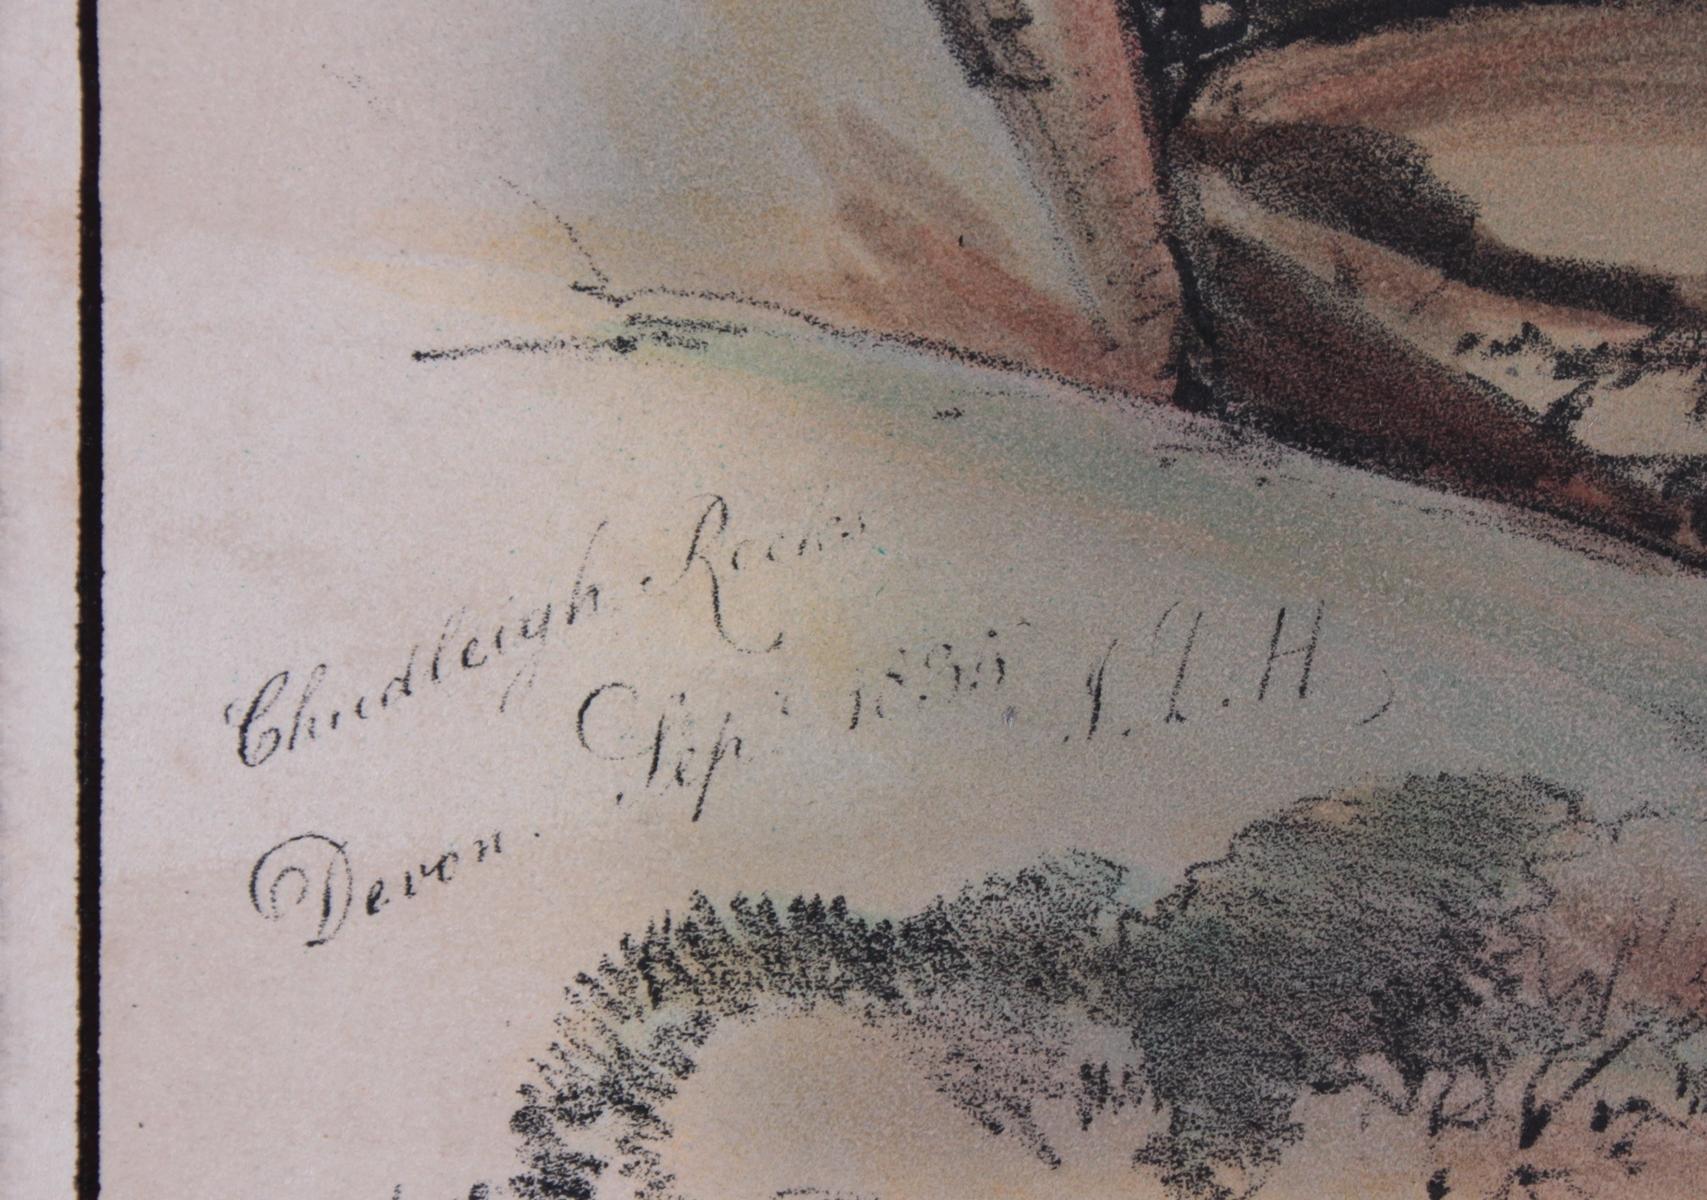 Chudleigh Rocks
Devon. Sep.r 1835 J. D. H